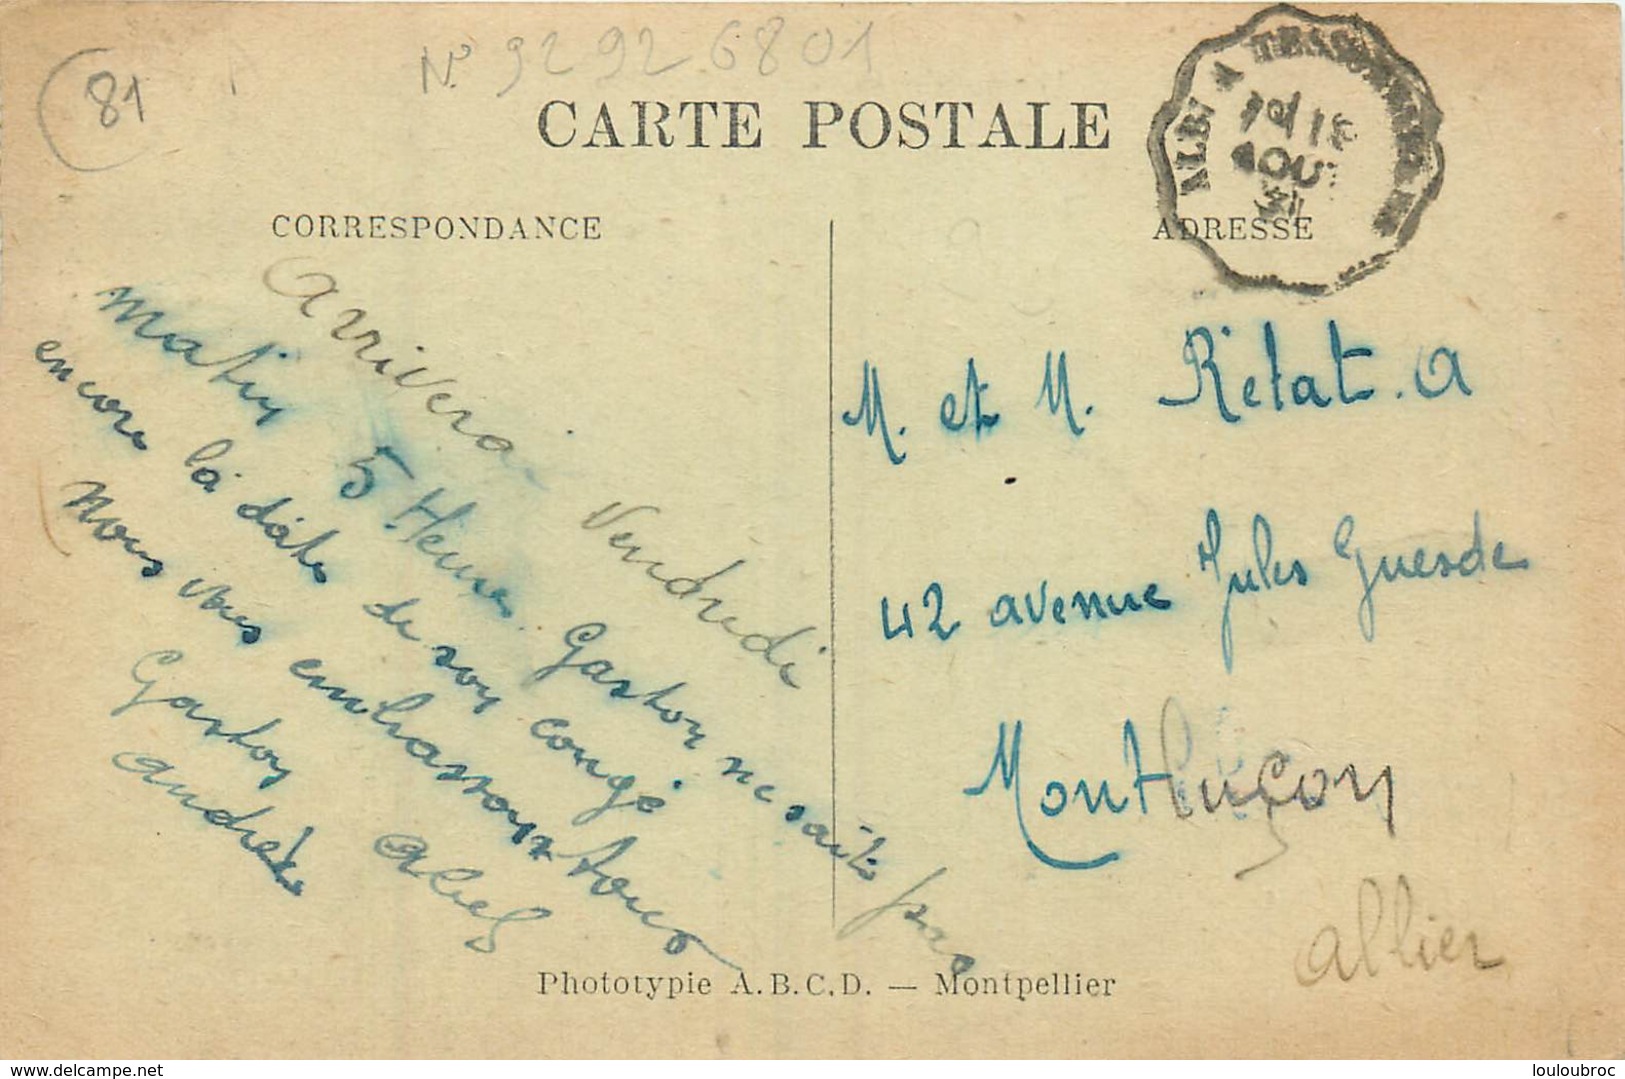 81
N° 92926801
CARTE POSTALE
ALBI A
AOU
CORRESPONDANCE
ADRESSE
Arriverai Vendredi
matin 5 Heures. Gaston ne sait pas
encore la date de son congé
Nous vous embrassons tous
Gaston Abel
Andrée
M. et M. Rélat. A
42 avenue Jules Guesde
Montluçon
Allier
Phototypie A.B.C.D. — Montpellier
delcampe.net
louloubroc